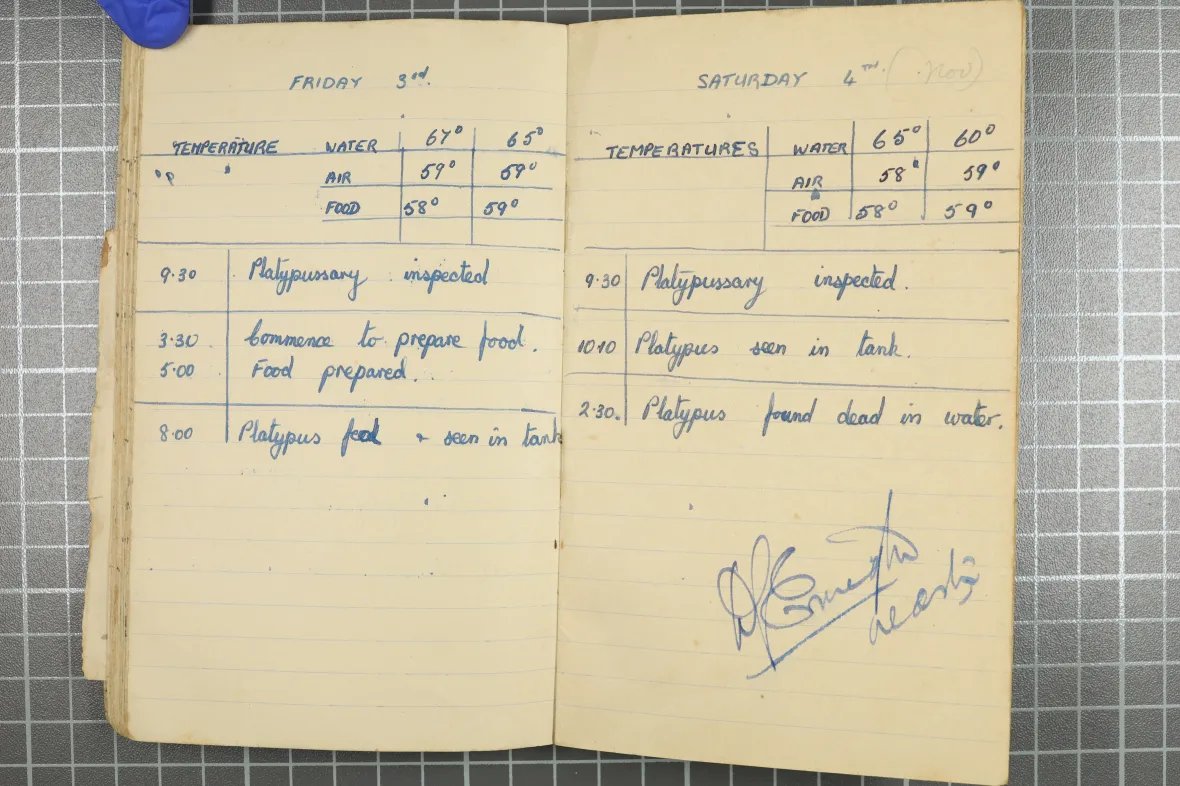 FRIDAY 3rd.
TEMPERATURE WATER 67° 65°
" " AIR 59° 59°
FOOD 58° 59°
9.30 Platypussary inspected
3.30 Commence to prepare food.
5.00 Food prepared.
8.00 Platypus fed + seen in tank
SATURDAY 4TH (Nov)
TEMPERATURES WATER 65° 60°
AIR 58° 59°
FOOD 58° 59°
9.30 Platypussary inspected.
10.10 Platypus seen in tank.
2.30. Platypus found dead in water.